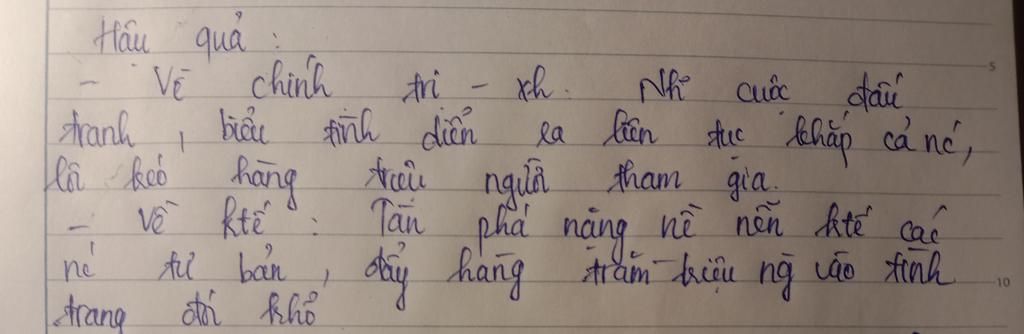 Hậu quả :
- Về chính trị - xh. Nh~ cuộc đấu
tranh, biểu tình diễn ra liên tục khắp cả nc',
lôi kéo hàng triệu người tham gia.
- Về ktế : Tàn phá nặng nề nền ktế các
nc' tư bản, đẩy hàng trăm triệu ng` vào tình
trạng đói khổ